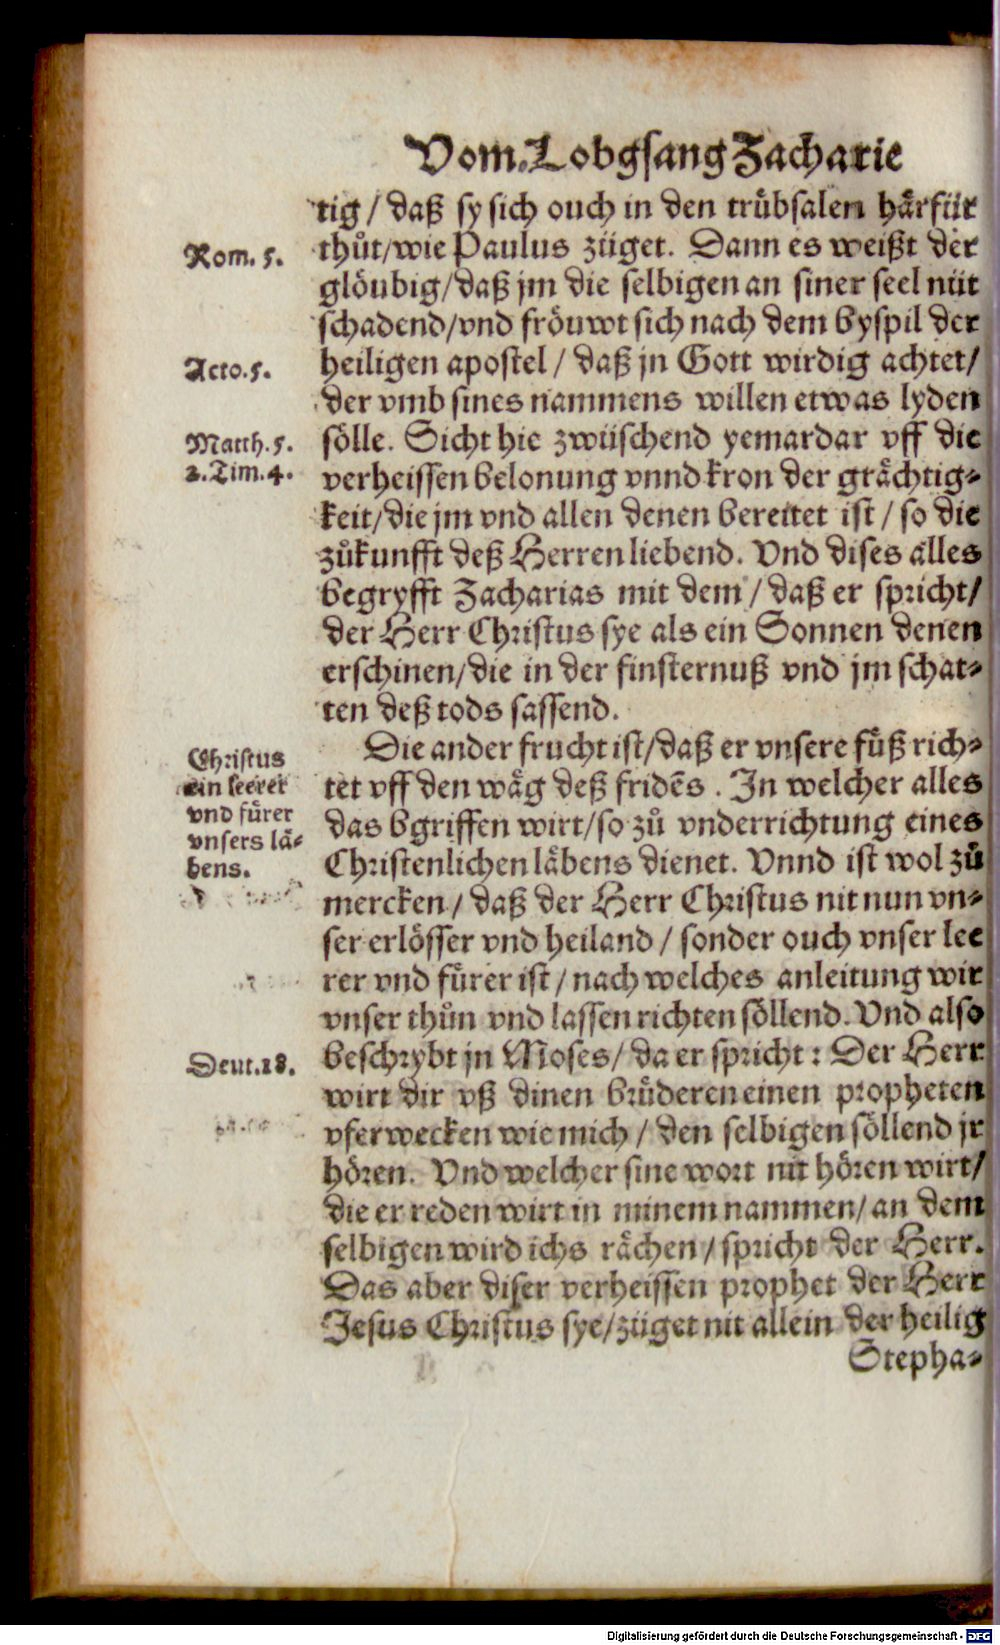 Vom Lobgsang Zacharie
tig / daß sy sich ouch in den trübsalen härfür
thůt/wie Paulus züget. Dann es weißt der
glöubig/daß jm die selbigen an siner seel nüt
schadend/vnd fröuwt sich nach dem byspil der
heiligen apostel / daß jn Gott wirdig achtet/
der vmb sines nammens willen etwas lyden
sölle. Sicht hie zwüschend yemardar vff die
verheissen belonung vnnd kron der grächtig-
keit/die jm vnd allen denen bereitet ist / so die
zůkunfft deß Herren liebend. Vnd dises alles
begryfft Zacharias mit dem / daß er spricht/
der Herr Christus sye als ein Sonnen denen
erschinen/die in der finsternuß vnd jm schat-
ten deß tods sassend.
Die ander frucht ist/daß er vnsere füß rich-
tet vff den wäg deß fridẽs . In welcher alles
das bgriffen wirt/so zů vnderrichtung eines
Christenlichen läbens dienet. Vnnd ist wol zů
mercken / daß der Herr Christus nit nun vn-
ser erlösser vnd heiland / sonder ouch vnser lee
rer vnd fürer ist / nach welches anleitung wir
vnser thůn vnd lassen richten söllend. Vnd also
beschrybt jn Moses/ da er spricht: Der Herr
wirt dir vß dinen brüderen einen propheten
vferwecken wie mich / den selbigen söllend jr
hören. Vnd welcher sine wort nit hören wirt/
die er reden wirt in minem nammen/ an dem
selbigen wird ichs rächen / spricht der Herr.
Das aber diser verheissen prophet der Herr
Jesus Christus sye/züget nit allein der heilig
Stepha-
Rom. 5.
Acto.5.
Matth.5.
2.Tim.4.
Christus
ein leerer
vnd fürer
vnsers lä-
bens.
Deut.18.
Digitalisierung gefördert durch die Deutsche Forschungsgemeinschaft - DFG